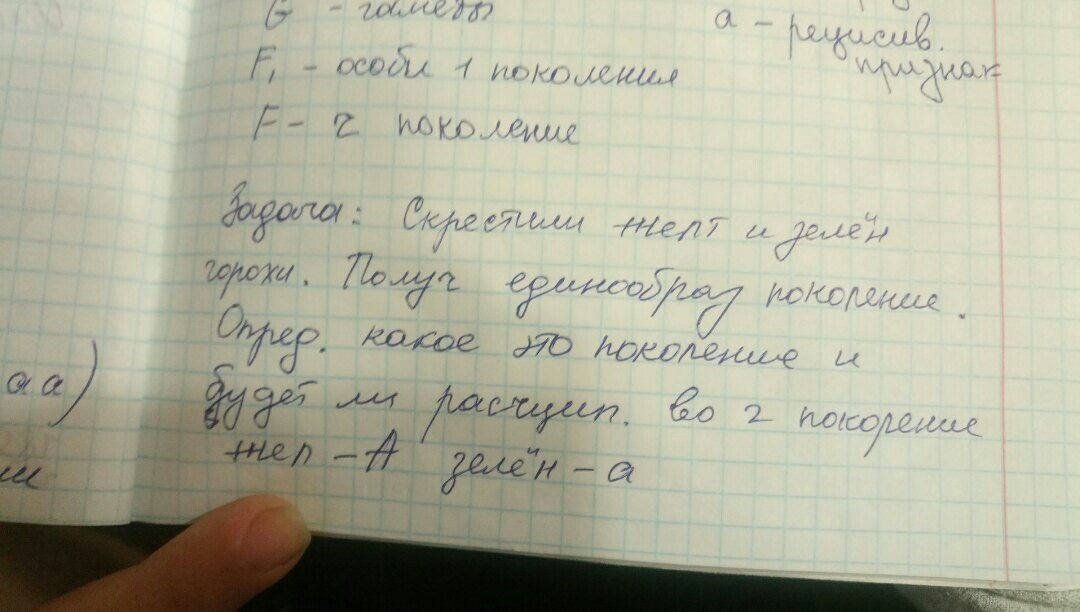 G - гаметы
а - рецисив.
признак
F₁ - особи 1 поколения
F - 2 поколение
Задача: Скрестили желт и зелён
горохи. Получ единообраз поколение.
Опред. какое это поколение и
будет ли расщип. во 2 поколение
жел - А зелён - а
аа)